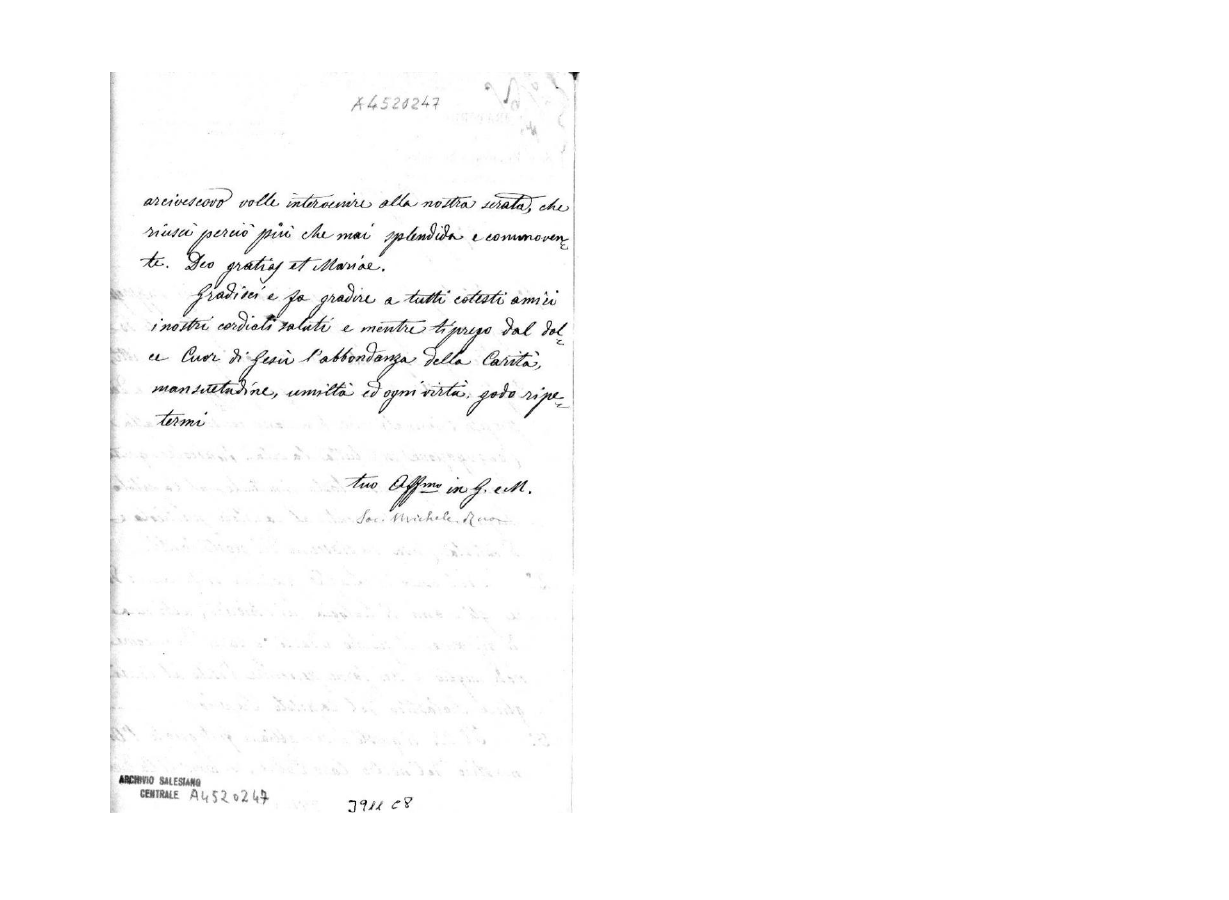 A4520247
arcivescovo volle intervenire alla nostra serata, che
riuscì perciò più che mai splendida e commoven=
te. Deo gratias et Mariae.
Gradisci e fa gradire a tutti cotesti amici
i nostri cordiali saluti e mentre ti prego dal dol=
ce Cuor di Gesù l'abbondanza della Carità,
mansuetudine, umiltà ed ogni virtù, godo ripe=
termi
tuo Affmo in G. e M.
Sac. Michele Rua
ARCHIVIO SALESIANO
CENTRALE A4520247
3911 C8